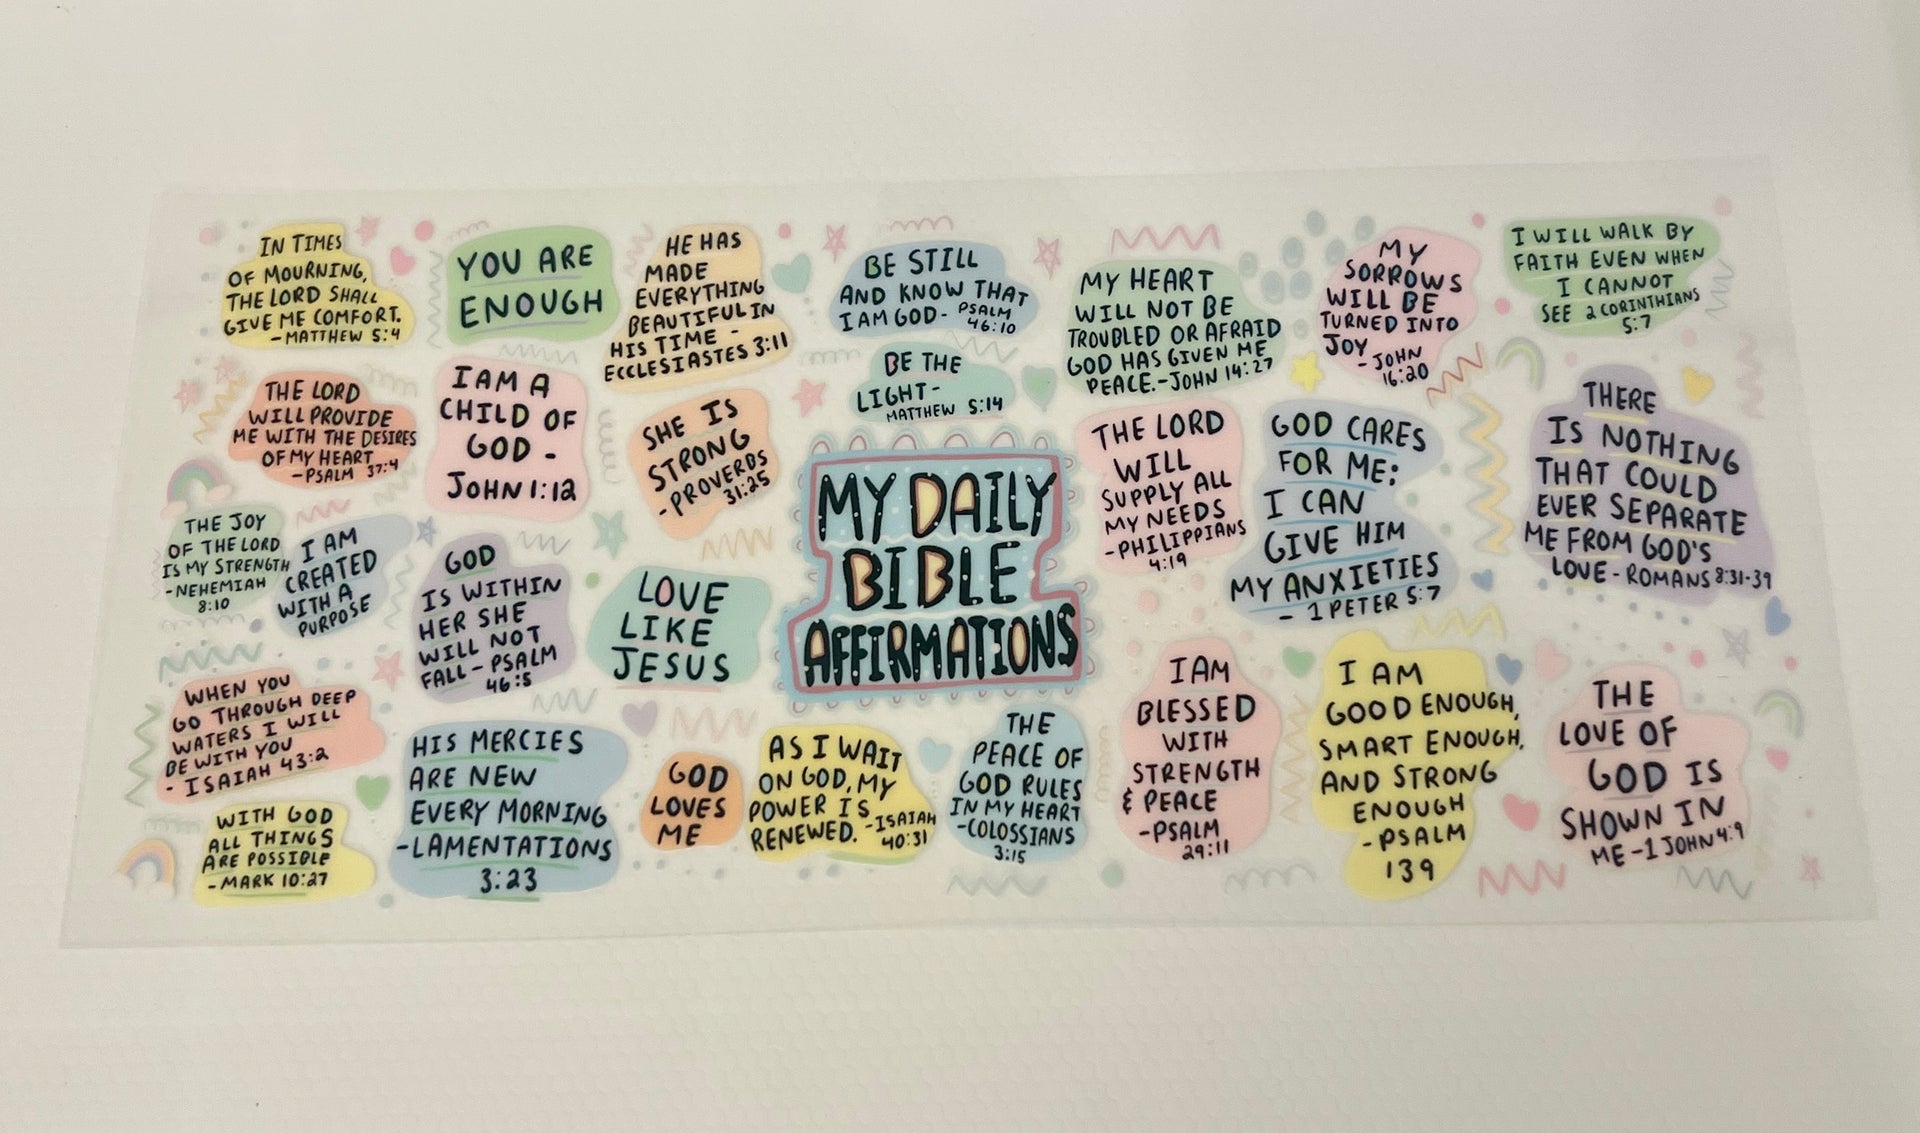 IN TIMES
OF MOURNING,
THE LORD SHALL
GIVE ME COMFORT.
- MATTHEW 5:4
YOU ARE
ENOUGH
HE HAS
MADE
EVERYTHING
BEAUTIFUL IN
HIS TIME -
ECCLESIASTES 3:11
BE STILL
AND KNOW THAT
I AM GOD - PSALM
46:10
BE THE
LIGHT -
MATTHEW 5:14
MY HEART
WILL NOT BE
TROUBLED OR AFRAID
GOD HAS GIVEN ME
PEACE. - JOHN 14:27
MY
SORROWS
WILL BE
TURNED INTO
JOY
- JOHN
16:20
I WILL WALK BY
FAITH EVEN WHEN
I CANNOT
SEE 2 CORINTHIANS
5:7
THE LORD
WILL PROVIDE
ME WITH THE DESIRES
OF MY HEART
- PSALM 37:4
I AM A
CHILD OF
GOD -
JOHN 1:12
SHE IS
STRONG
- PROVERBS
31:25
MY DAILY
BIBLE
AFFIRMATIONS
THE LORD
WILL
SUPPLY ALL
MY NEEDS
- PHILIPPIANS
4:19
GOD CARES
FOR ME:
I CAN
GIVE HIM
MY ANXIETIES
- 1 PETER 5:7
THERE
IS NOTHING
THAT COULD
EVER SEPARATE
ME FROM GOD'S
LOVE - ROMANS 8:31-39
THE JOY
OF THE LORD
IS MY STRENGTH
- NEHEMIAH
8:10
I AM
CREATED
WITH A
PURPOSE
GOD
IS WITHIN
HER SHE
WILL NOT
FALL - PSALM
46:5
LOVE
LIKE
JESUS
WHEN YOU
GO THROUGH DEEP
WATERS I WILL
BE WITH YOU
- ISAIAH 43:2
WITH GOD
ALL THINGS
ARE POSSIBLE
- MARK 10:27
HIS MERCIES
ARE NEW
EVERY MORNING
- LAMENTATIONS
3:23
GOD
LOVES
ME
AS I WAIT
ON GOD, MY
POWER IS
RENEWED. - ISAIAH
40:31
THE
PEACE OF
GOD RULES
IN MY HEART
- COLOSSIANS
3:15
I AM
BLESSED
WITH
STRENGTH
& PEACE
- PSALM
29:11
I AM
GOOD ENOUGH,
SMART ENOUGH,
AND STRONG
ENOUGH
- PSALM
139
THE
LOVE OF
GOD IS
SHOWN IN
ME - 1 JOHN 4:9